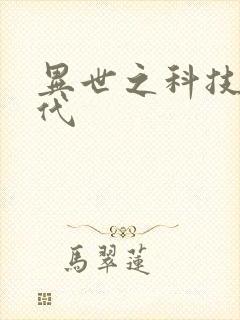 異世之科技
代
馬翠蓮